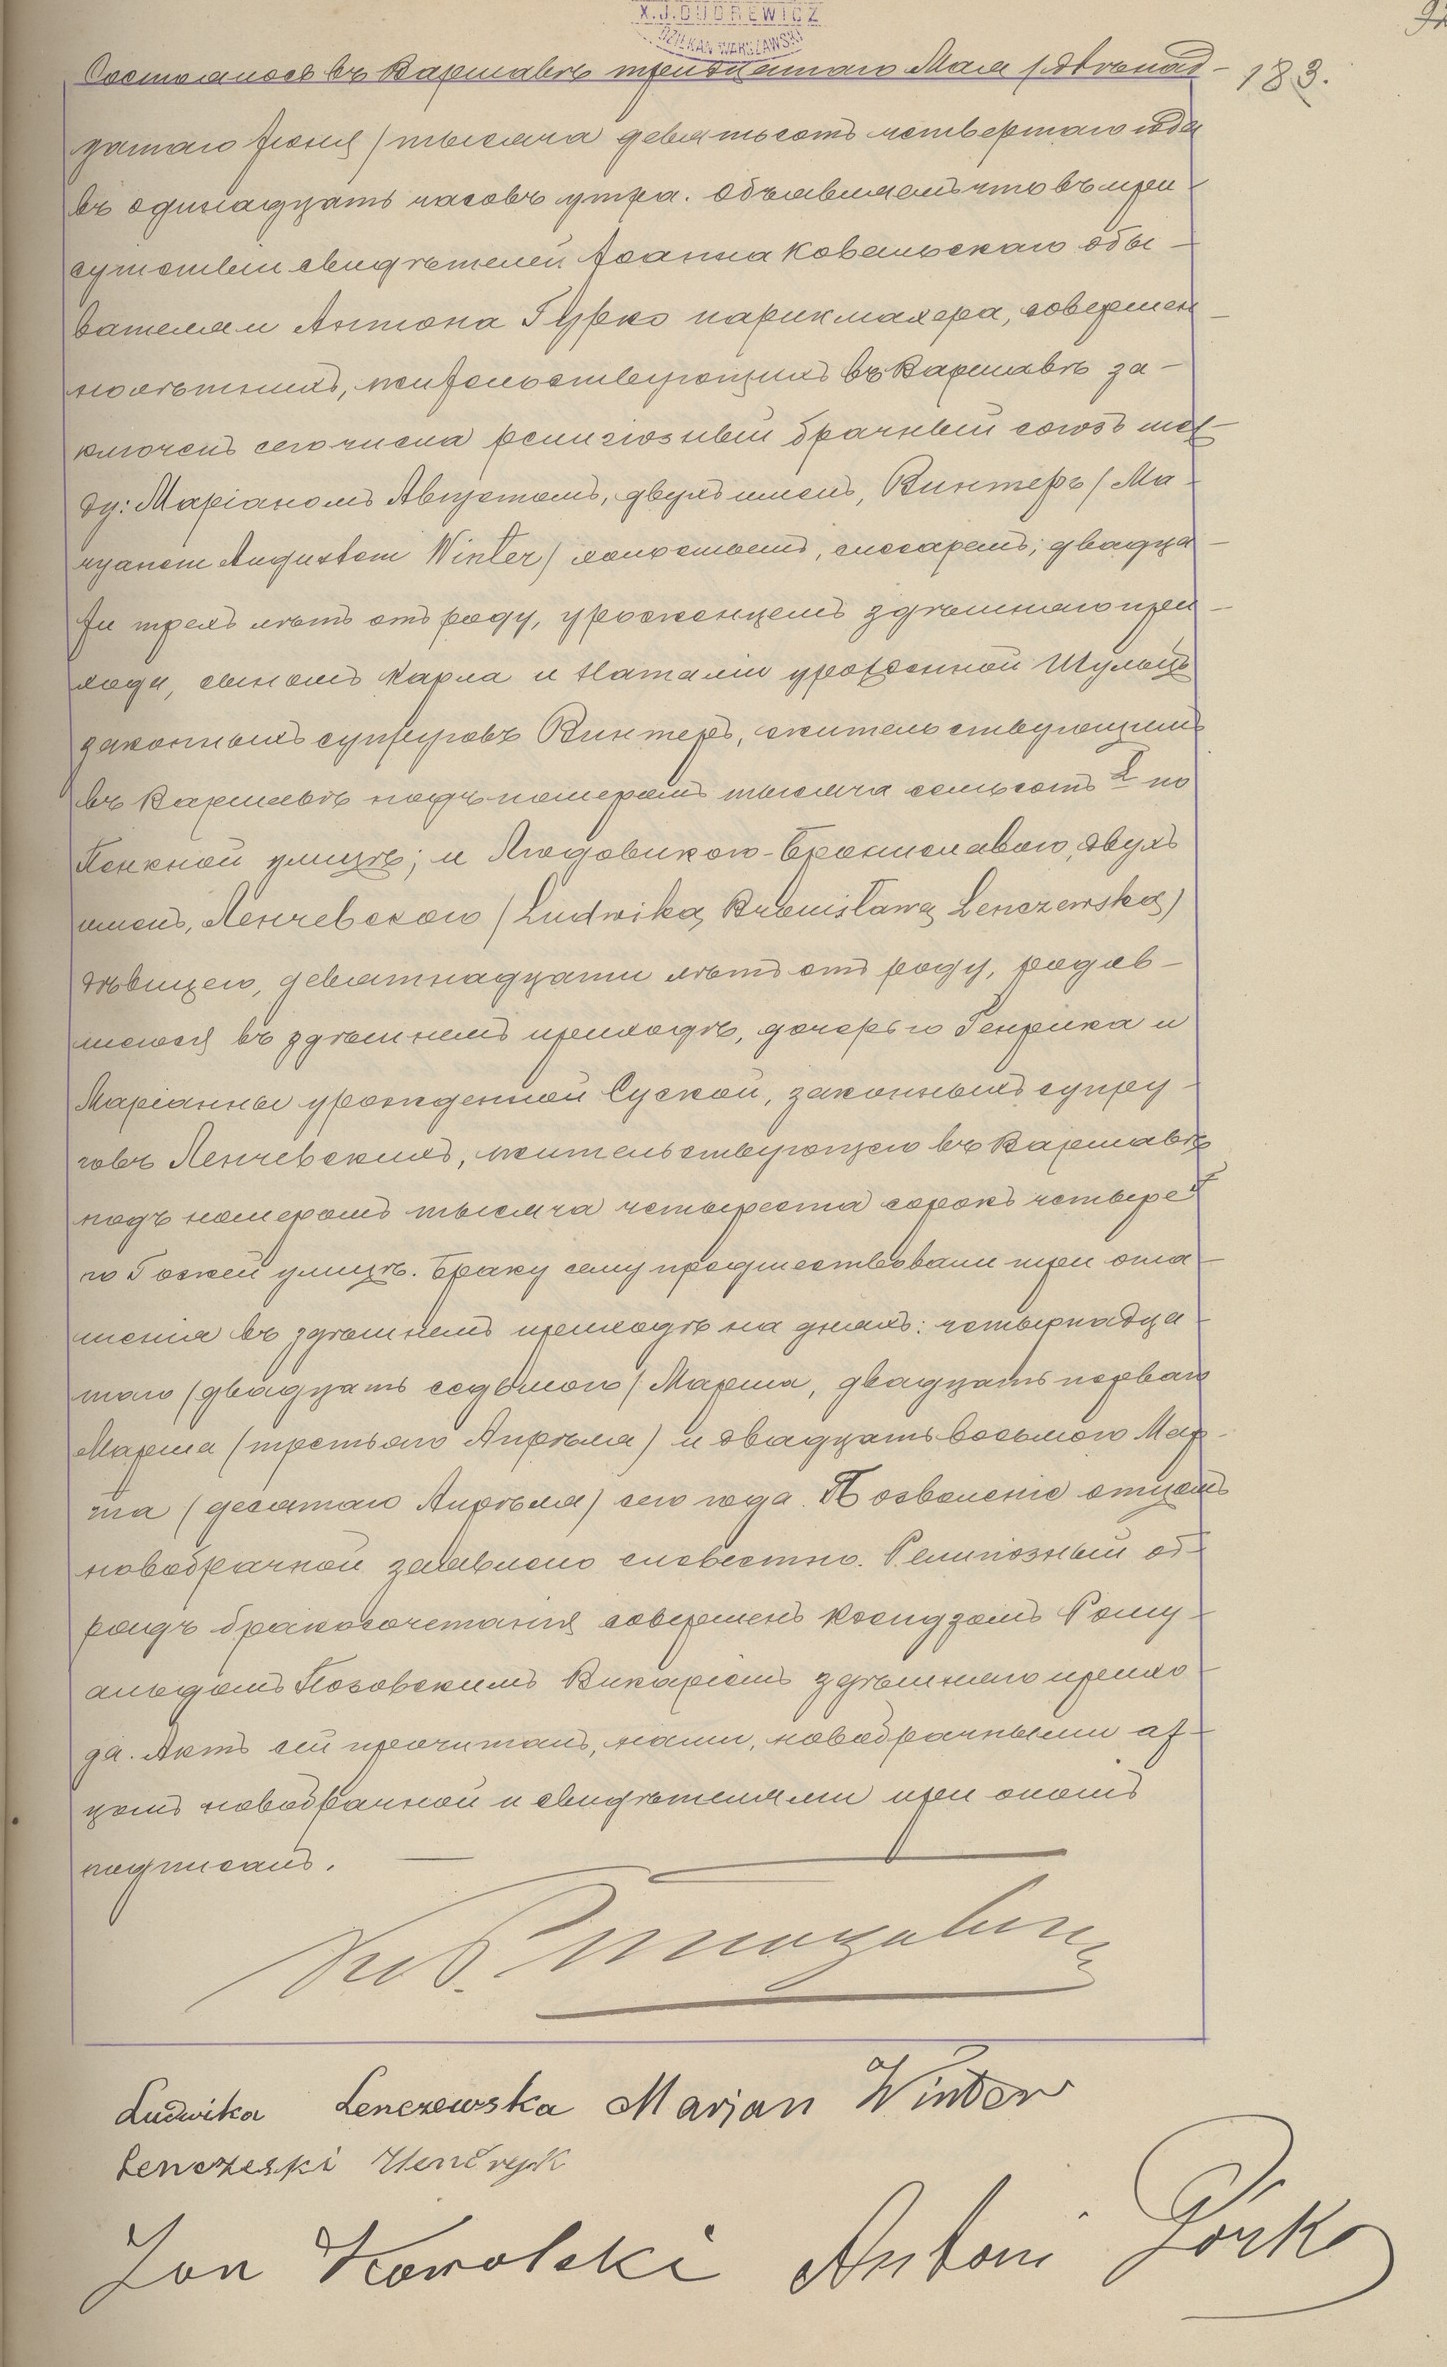 X.J.DUDREWICZ
DZIEKAN WARSZAWSKI
183.
Состоялось въ Варшавѣ тридцатаго Мая /двѣнад-
цатаго Іюня/ тысяча девятьсотъ четвертаго года
въ одинадцать часовъ утра. Объявляемъ что въ при-
сутствіи свидѣтелей Іоанна Ковальскаго обы-
вателя и Антона Гурко парикмахера, совершен-
нолѣтныхъ, жительствующихъ въ Варшавѣ за-
ключенъ сего числа религіозный брачный союзъ меж-
ду: Маріаномъ Августомъ, двухъ именъ, Винтеръ /Ma-
ryanem Augustem Winter/ холостымъ, слесаремъ; двадца-
ти трехъ лѣтъ отъ роду, уроженцемъ здѣшняго при-
хода, сыномъ Карла и Наталіи урожденной Шульцъ
законныхъ супруговъ Винтеръ, жительствующимъ
въ Варшавѣ подъ номеромъ тысяча семьсотъ по
Пенкной улицѣ; и Людовикою-Брониславою, двухъ
именъ, Ленчевскою /Ludwiką Bronisławą Lenczewską/
дѣвицею, девятнадцати лѣтъ отъ роду, родив-
шеюся въ здѣшнемъ приходѣ, дочерью Генрика и
Маріанны урожденной Суской, законныхъ супру-
говъ Ленчевскихъ, жительствующею въ Варшавѣ
подъ номеромъ тысяча четыреста сорокъ четыре
по Гожей улицѣ. Браку сему предшествовали три огла-
шенія въ здѣшнемъ приходѣ на дняхъ: четырнадца-
таго /двадцать седьмого/ Марта, двадцать перваго
Марта /третьяго Апрѣля/ и двадцать восьмого Мар-
та /десятаго Апрѣля/ сего года. Позволеніе отцемъ
новобрачной заявлено словестно. Религіозный об-
рядъ бракосочетанія совершенъ Ксендзомъ Рому-
альдомъ Викаріемъ здѣшняго прихо-
да. Актъ сей прочитанъ, нами, новобрачными от-
цемъ новобрачной и свидѣтелями при ономъ
подписанъ.
Ludwika Lenczewska Marjan Winter
Lenczeski Hendryk
Jan Kowalski Antoni Górko